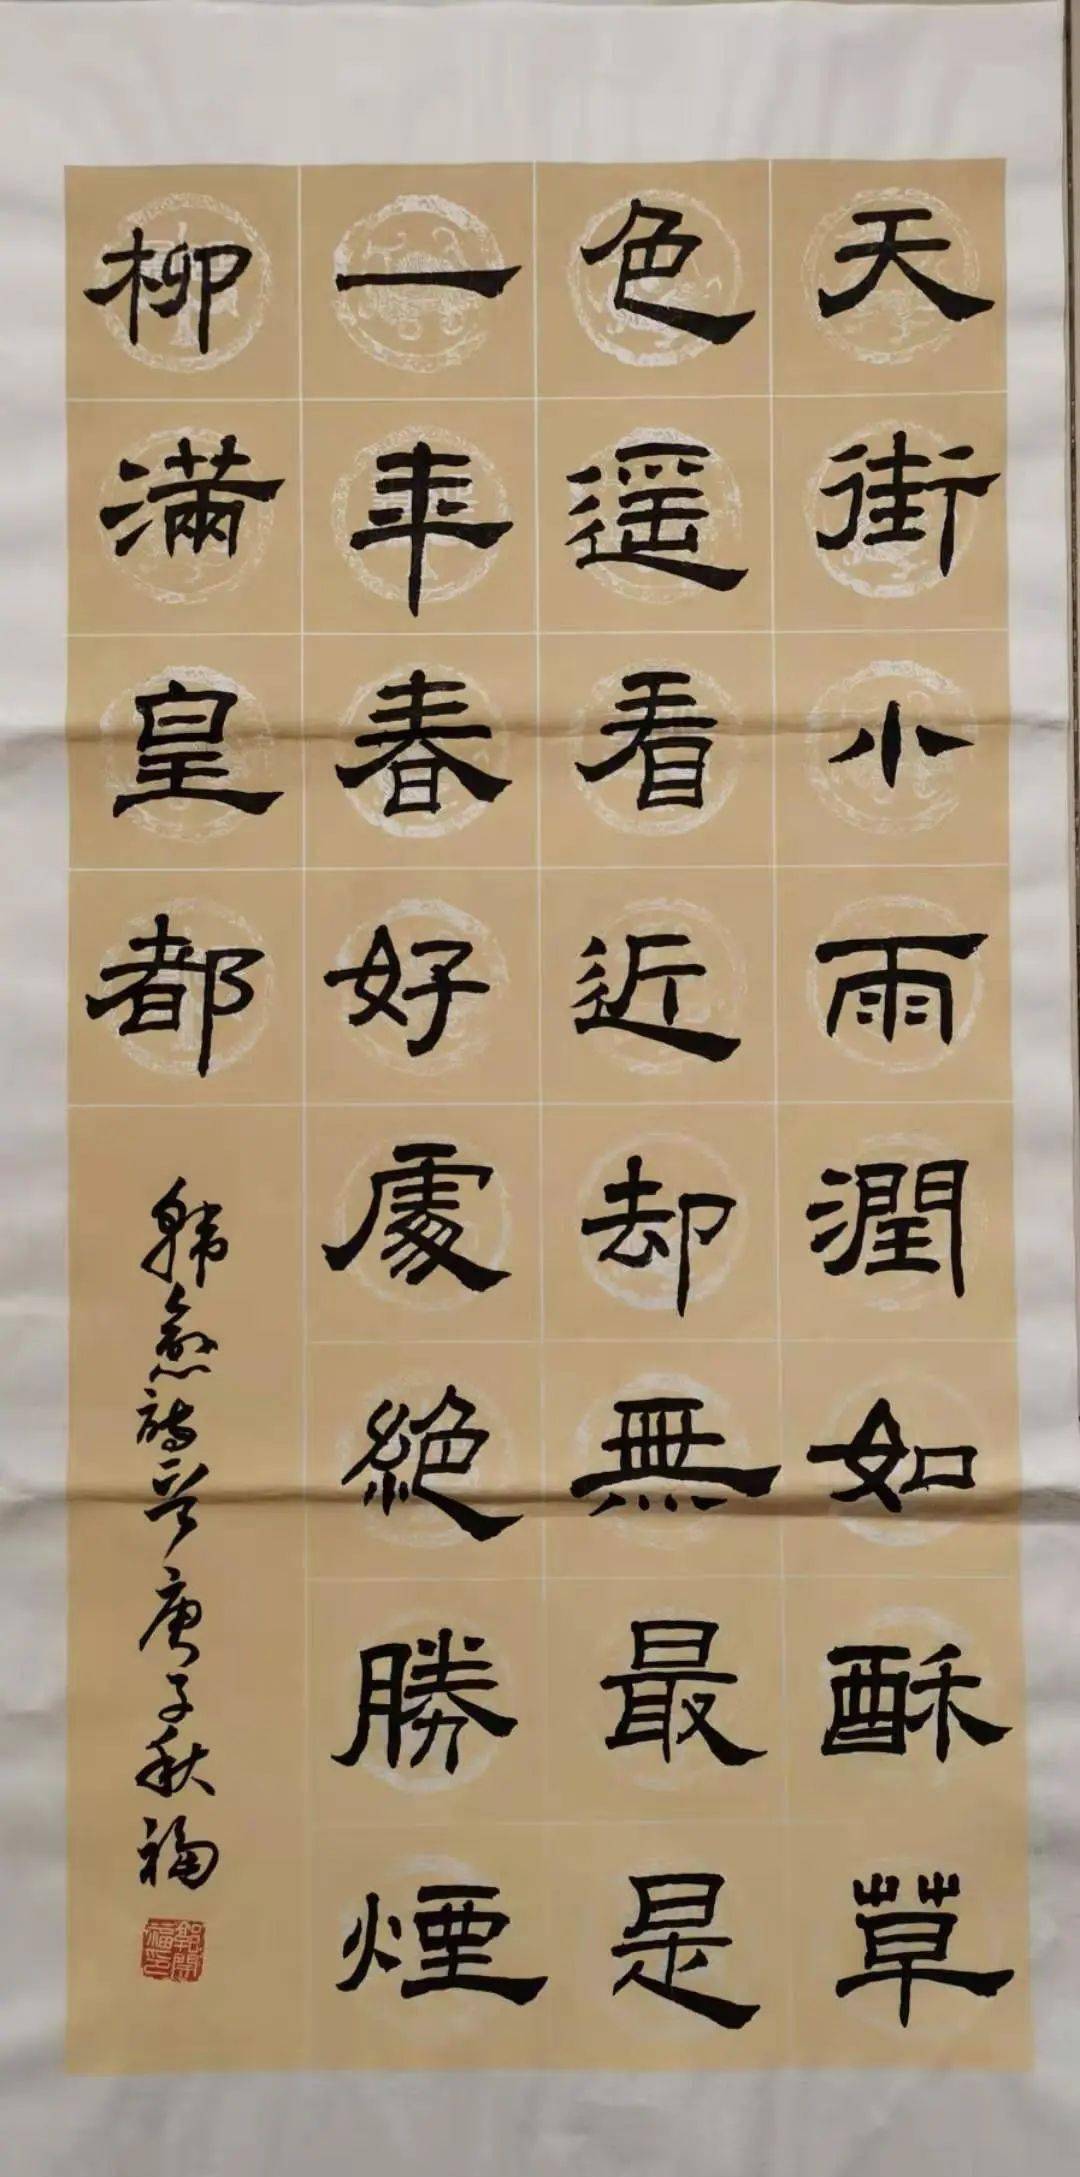 天街小雨潤如酥草
色遥看近却無最是
一年春好處絶勝煙
柳滿皇都
韓愈詩一首庚子秋福